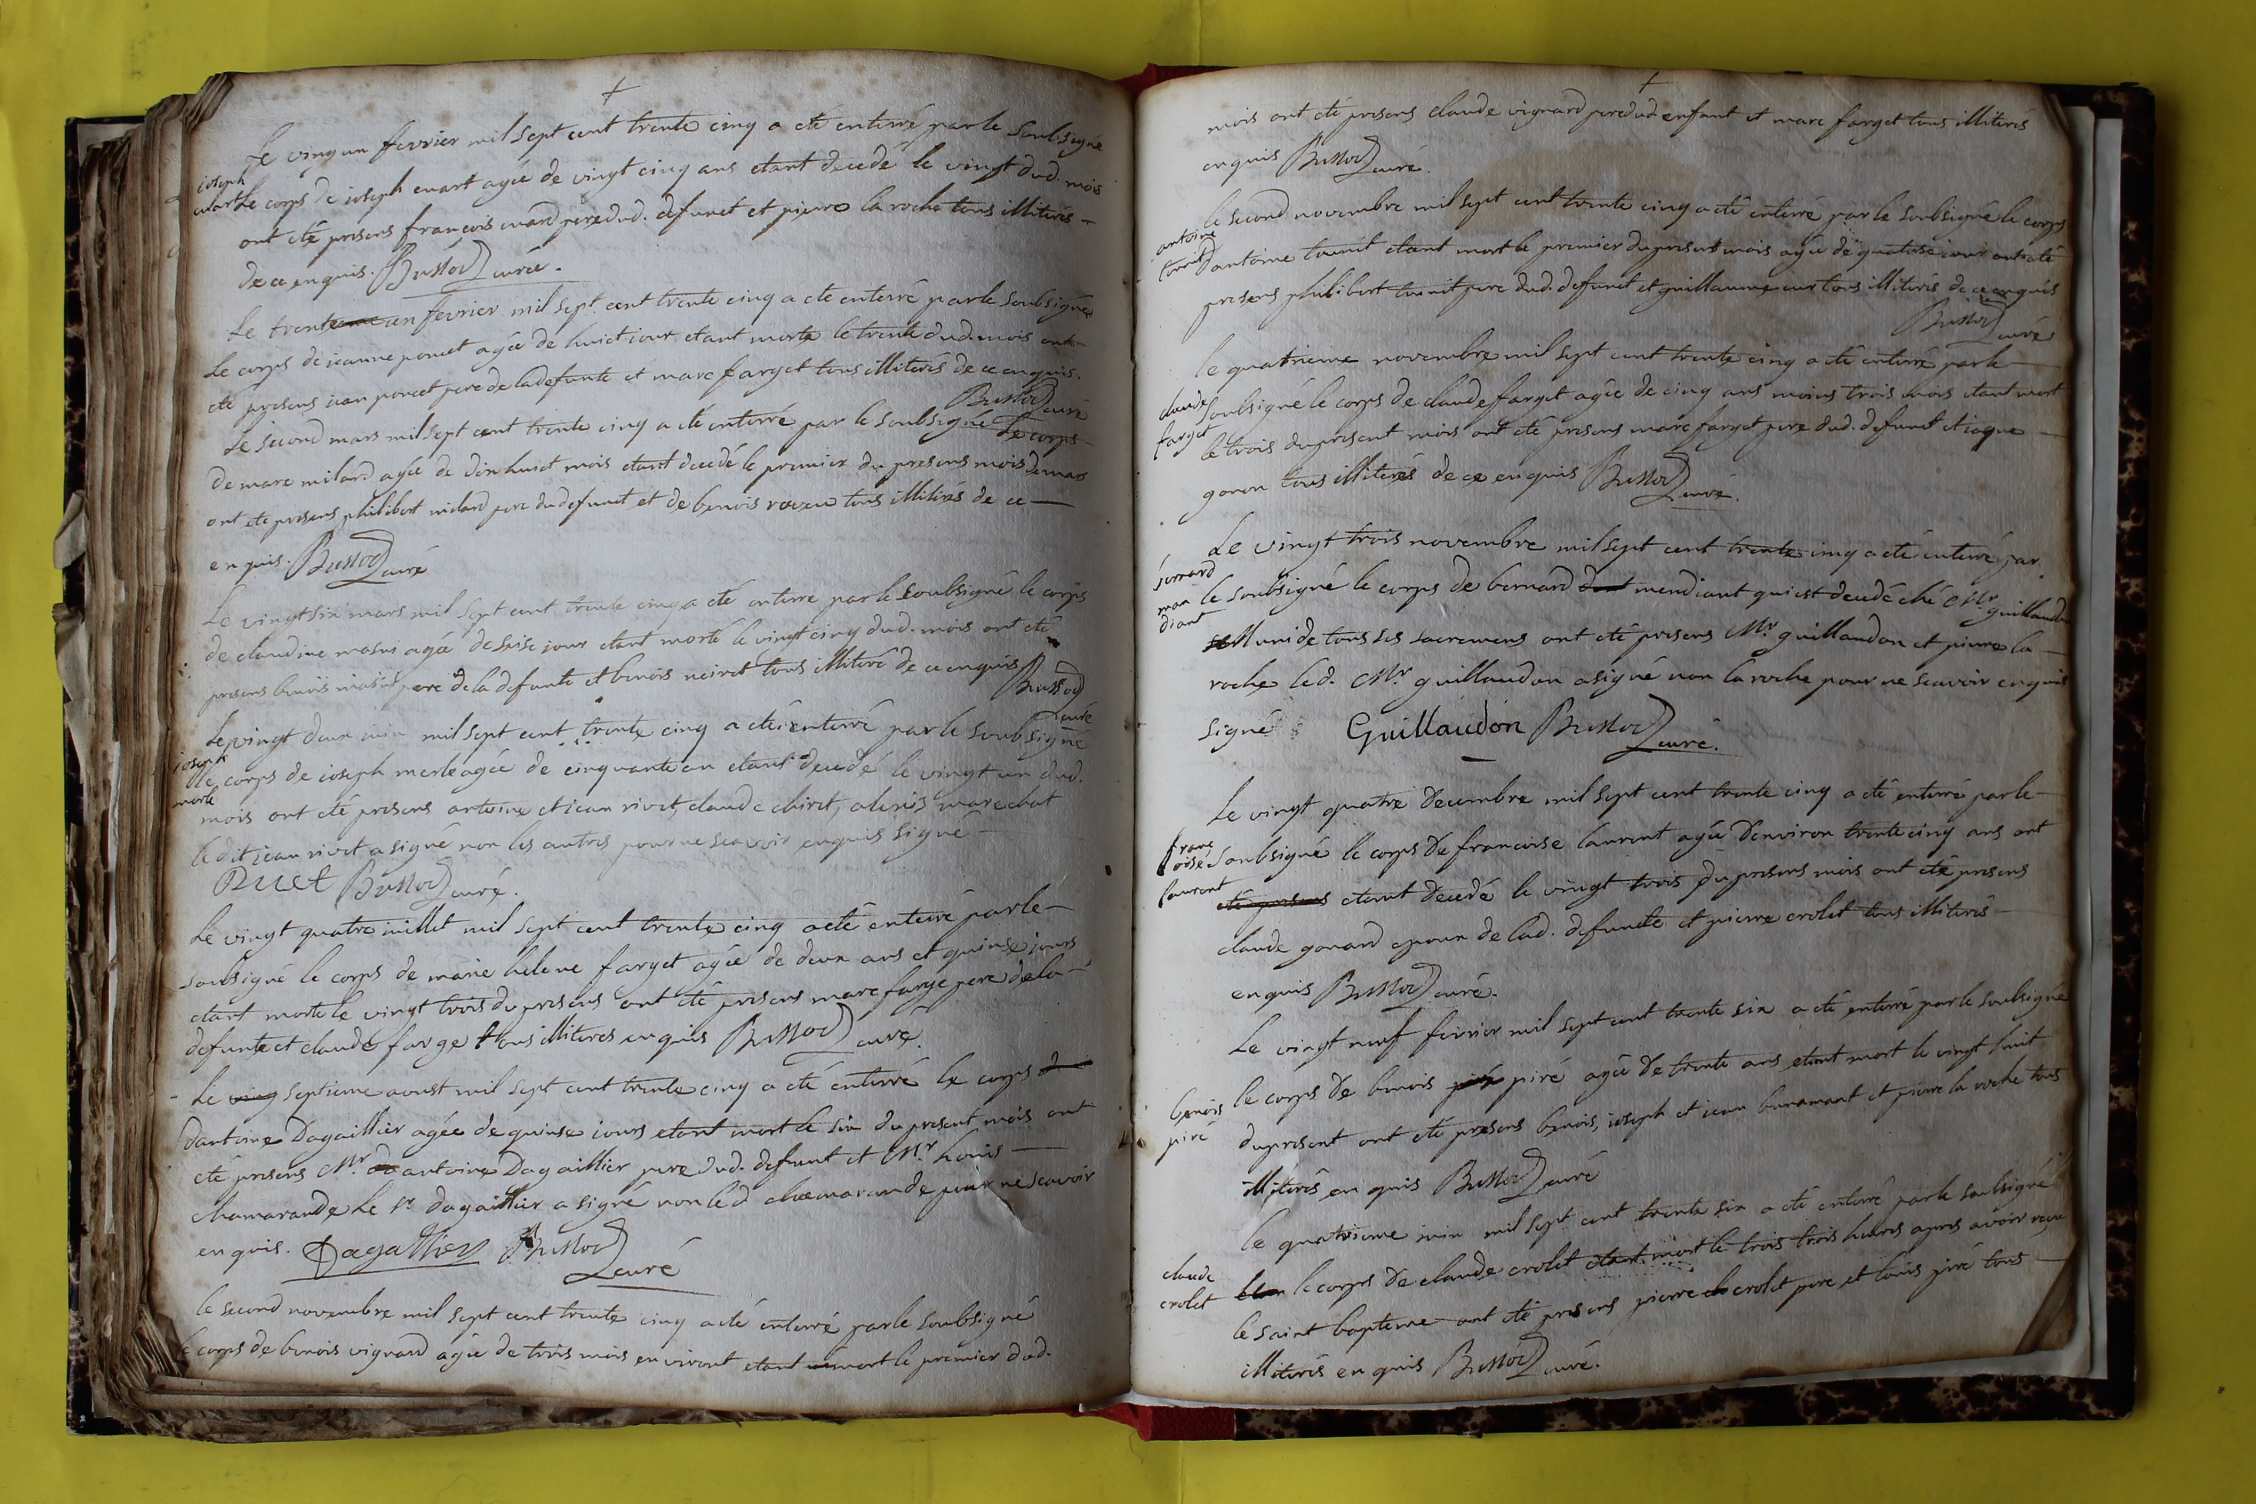 Le vingt un fevrier mil sept cent trente cinq a eté enterré par le soubsigné
joseph
cuart
le corps de ioseph cuart agée de vingt cinq ans etant decedé le vingt dud. mois
ont eté presens françois cuard pere dud. defunct et pierre la roche tous illiterés
de ce enquis. Bussod curé.
Le trente un fevrier mil sept cent trente cinq a eté enterré par le soubsigné
Le corps de ieanne poncet agée de huict iour etant morte le trente dud. mois ont
eté presens iean poncet pere de la defunte et marc farget tous illiterés de ce enquis.
Bussod curé
Le second mars mil sept cent trente cinq a eté enterré par le soubsigné Le corps
de marc milard agée de dix huict mois etant decedé le premier du presens mois de mars
ont ete presens philibert milard pere du defunct et de benois tous illiterés de ce
enquis. Bussod curé
Le vingt six mars mil sept cent trente cinq a eté enterre par le soubsigné le corps
de claudine masui agée de seise jour etant morte le vingt cinq dud. mois ont eté
presens benois masui pere de la defunte et benois neiret tous illiteré de ce enquis Bussod
curé
Le vingt deux iuin mil sept cent trente cinq a eté enterré par le soubsigné
joseph
merle
le corps de ioseph merle agée de cinquante an etant decedé le vingt un dud.
mois ont eté presens antoine et iean rivet, claude chiret, alexis marechat
le dit iean rivet a signé non les autres pour ne scavoir enquis signé
Rivet Bussod curé.
Le vingt quatre iuillet mil sept cent trente cinq a eté enterré par le
soubsigné le corps de marie helene farget agée de deux ans et quinse jours
etant morte le vingt trois du presens ont eté presens marc farge pere de la
defunte et claude farge tous illiteres enquis Bussod curé.
Le ving septieme aoust mil sept cent trente cinq a eté enterré le corps
dantoine Dagaillier agée de quinse iours etant mort le six du present mois ont
eté presens Mr. antoine Dagaillier pere dud. defunt et Mr. Louis
chamarande Le Sr. dagaillier a signé non led chamarande pour ne scavoir
enquis. Dagallier Bussod
curé
le second novembre mil sept cent trente cinq a eté enterré par le soubsigné
le corps de benois vignard agée de trois mois environt etant mort le premier dud.
mois ont eté presens claude vignard pere dud enfant et marc farget tous illiterés
enquis Bussod curé.
Le second novembre mil sept cent trente cinq a eté enterré par le soubsigné le corps
antoine
dantoine etant mort le premier du present mois agée de quatorse iour ont eté
presens philibert pere dud. defunct et guillaume tous illiterés de ce enquis
Bussod
curé
le quatrieme novembre mil sept cent trente cinq a eté enterré par le
claude
farget
soubsigné le corps de claude farget agée de cinq ans moins trois mois etant mort
le trois du present mois ont eté presens marc farget pere dud. defunct et iaque
gonon tous illiterés de ce enquis Bussod curé.
Le vingt trois novembre mil sept cent trente cinq a eté enterré par
bernard
man
diant
le soubsigné le corps de bernard mendiant qui est decedé ché Mr guillaudon
Muni de tous ses sacremens ont eté presens Mr. guillaudon et pierre la
roche led. Mr. guillaudon a signé non la roche pour ne scavoir enquis
signé Guillaudon Bussod curé.
Le vingt quatre decembre mil sept cent trente cinq a eté enterré par le
franc
oise
laurent
soubsigné le corps de francoise laurent agée denviron trente cinq ans ont
eté presens etant decedé le vingt trois du presens mois ont eté presens
claude gonard epoux de lad. defuncte et pierre crolet tous illiterés
enquis Bussod curé.
Le vingt neuf fevrier mil sept cent trente six a eté enterré par le soubsigné
benois
piré
le corps de benois piré agée de trente ans etant mort le vingt huit
du present ont eté presens benois, ioseph et iean buramant et pierre la roche tous
illiterés enquis Bussod curé
le quatrieme iuin mil sept cent trente six a eté enterré par le soubsigné
claude
crolet
le corps de claude crolet etant mort le trois trois heures apres avoir reçu
le saint bapteme ont eté presens pierre crolet pere et louis piré tous
illiterés enquis Bussod curé.